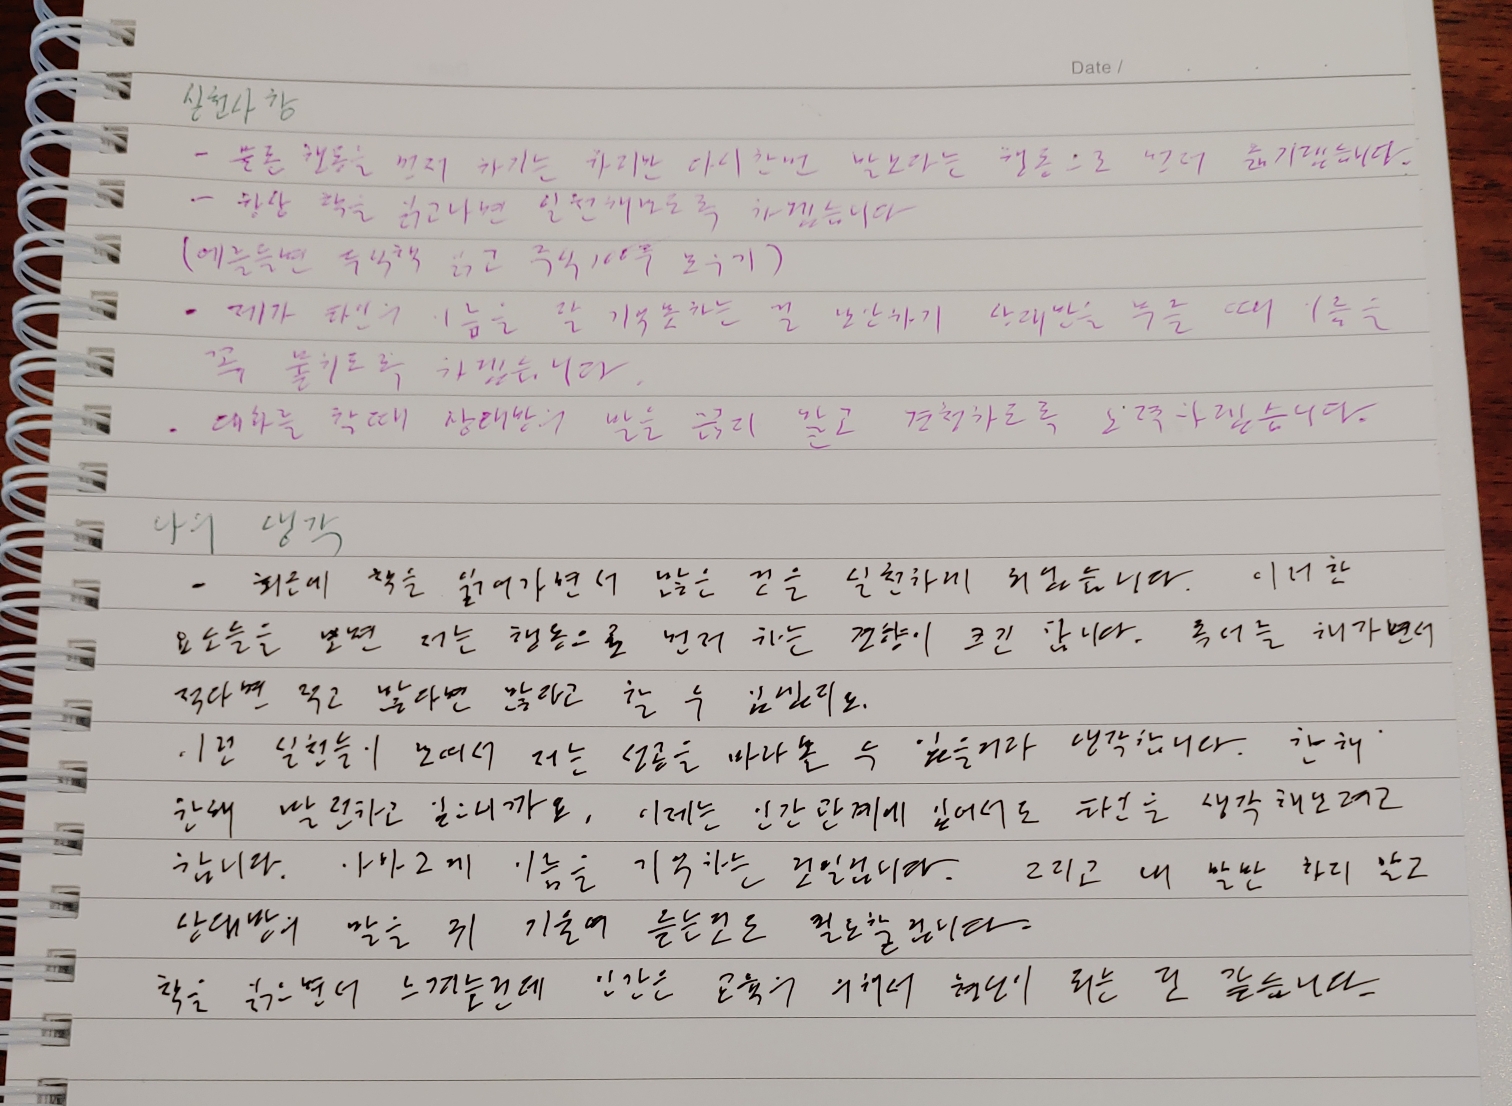 Date /
실천사항
- 물론 행동을 먼저 하기는 하지만 다시한번 말보다는 행동으로 먼저 옮기겠습니다.
- 항상 책을 읽고나면 실천해보도록 하겠습니다
(예를들면 투식책 읽고 주식100주 모우기)
· 제가 타인의 이름을 잘 기억못하는 걸 보안하기 상대반을 부를 때 이름을
꼭 붙히도록 하겠습니다.
· 대화를 할때 상대방의 말을 끊지 말고 경청하도록 노력하겠습니다.
나의 생각
- 최근에 책을 읽어가면서 많은 것을 실천하게 되었습니다. 이러한
요소들을 보면 저는 행동으로 먼저 하는 경향이 크긴 합니다. 독서를 해가면서
적다면 적고 많다면 많다고 할 수 있겠지요.
이런 실천들이 모여서 저는 성공을 바라볼 수 있을거라 생각합니다. 한해
한해 발전하고 있으니까요. 이제는 인간관계에 있어서도 타인을 생각해보려고
합니다. 아마 그게 이름을 기억하는 것일겁니다. 그리고 내 말만 하지 않고
상대방의 말을 귀 기울여 듣는것도 필요할겁니다.
책을 읽으면서 느껴는건데 인간은 교육의 위해서 혁신이 되는 것 같습니다.